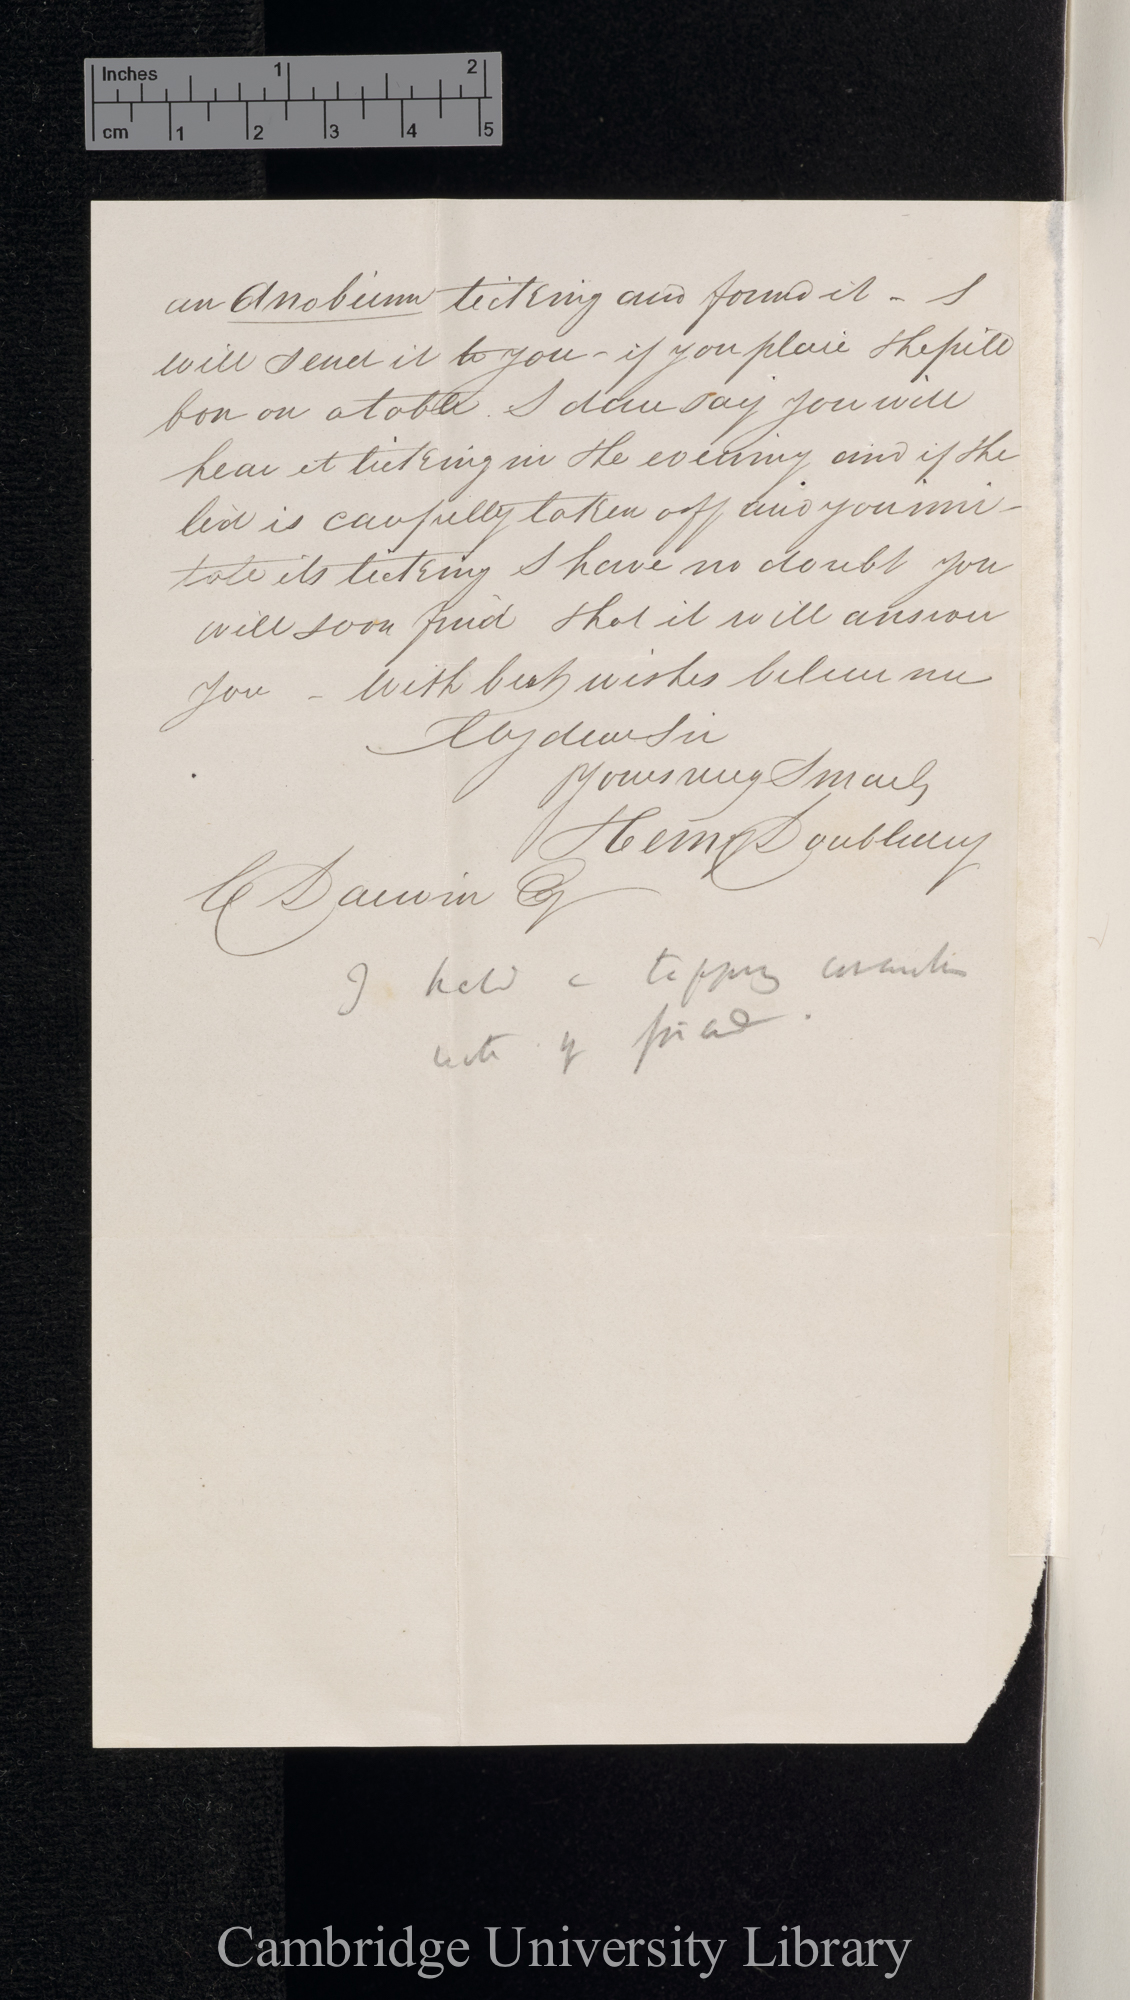 Inches 1 2
cm 1 2 3 4 5
an Anobium ticking and found it - I
will send it to you - if you place the pill
box on a table I dare say you will
hear it ticking in the evening and if the
lid is carefully taken off and you imi-
tate its ticking I have no doubt you
will soon find that it will answer
you - With best wishes believe me
My dear Sir
Yours very Sincerely
Henry Doubleday
C Darwin Esq
I held a tapping
of friend.
Cambridge University Library